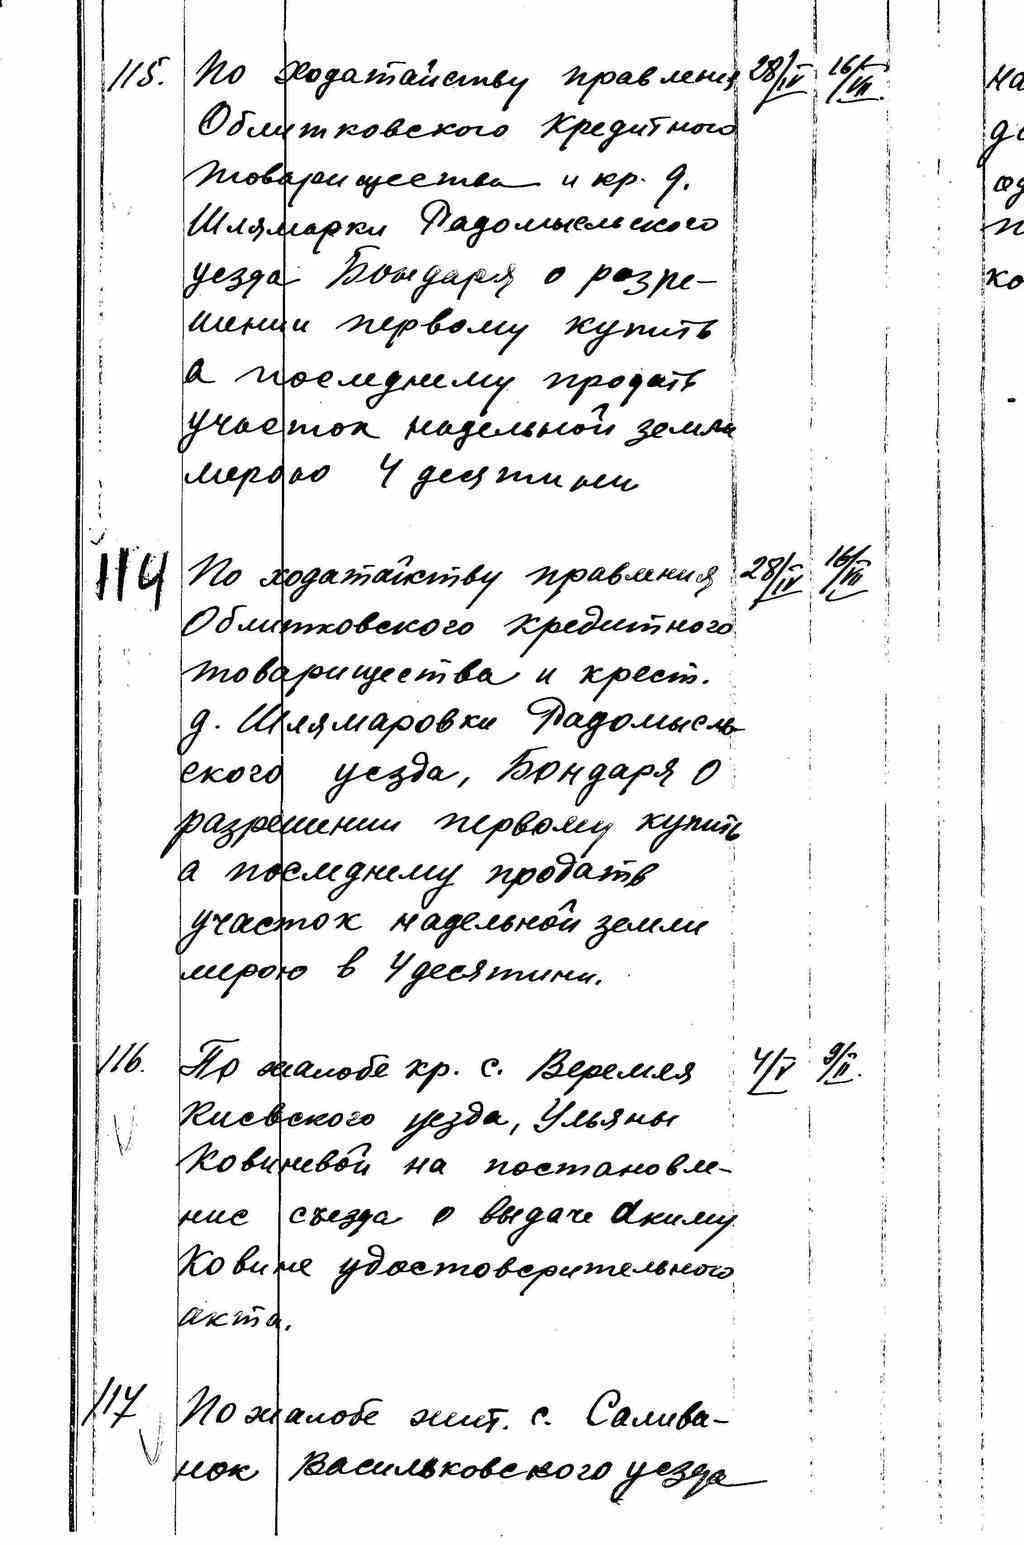 115. По ходатайству правления 28/IV 16/VII.
Облитковского Кредитного
товарищества и кр. д.
Шлямарки Радомысльского
уезда Бондаря о разре-
шении первому купить
а последнему продать
участок надельной земли
мерою 4 десятини
114 По ходатайству правления 28/IV 16/VII
Облитковского кредитного
товарищества и крест.
д. Шлямаровки Радомысль
ского уезда, Бондаря о
разрешении первому купить
а последнему продать
участок надельной земли
мерою в 4 десятини.
116. По жалобе кр. с. Веремея 4/V 9/II.
Киевского уезда, Ульяны
Ковиневой на постановле-
ние съезда о выдаче Акиму
Ковине удостоверительного
акта.
117 По жалобе жит. с. Салива-
нок Васильковского уезда